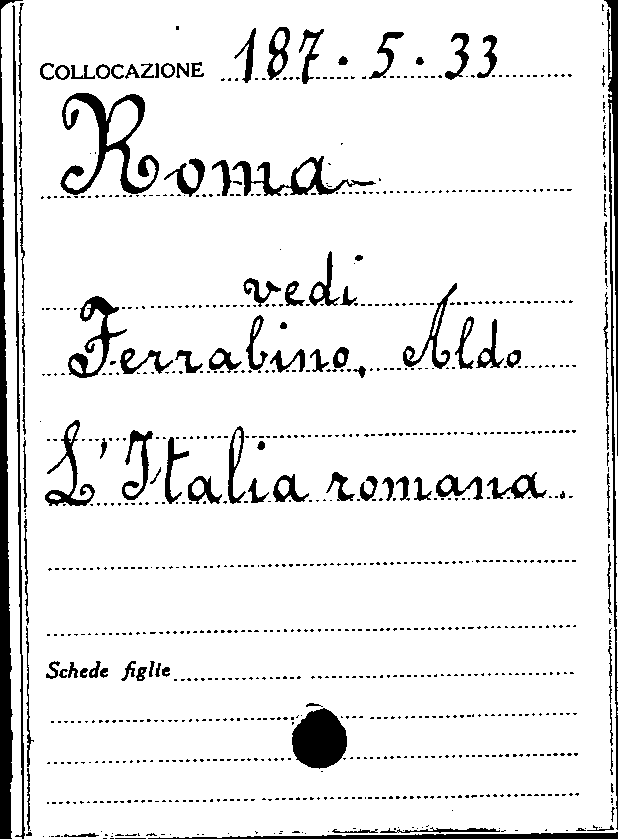 COLLOCAZIONE 187.5.33
Roma
vedi
Ferrabino, Aldo
L'Italia romana.
Schede figlie